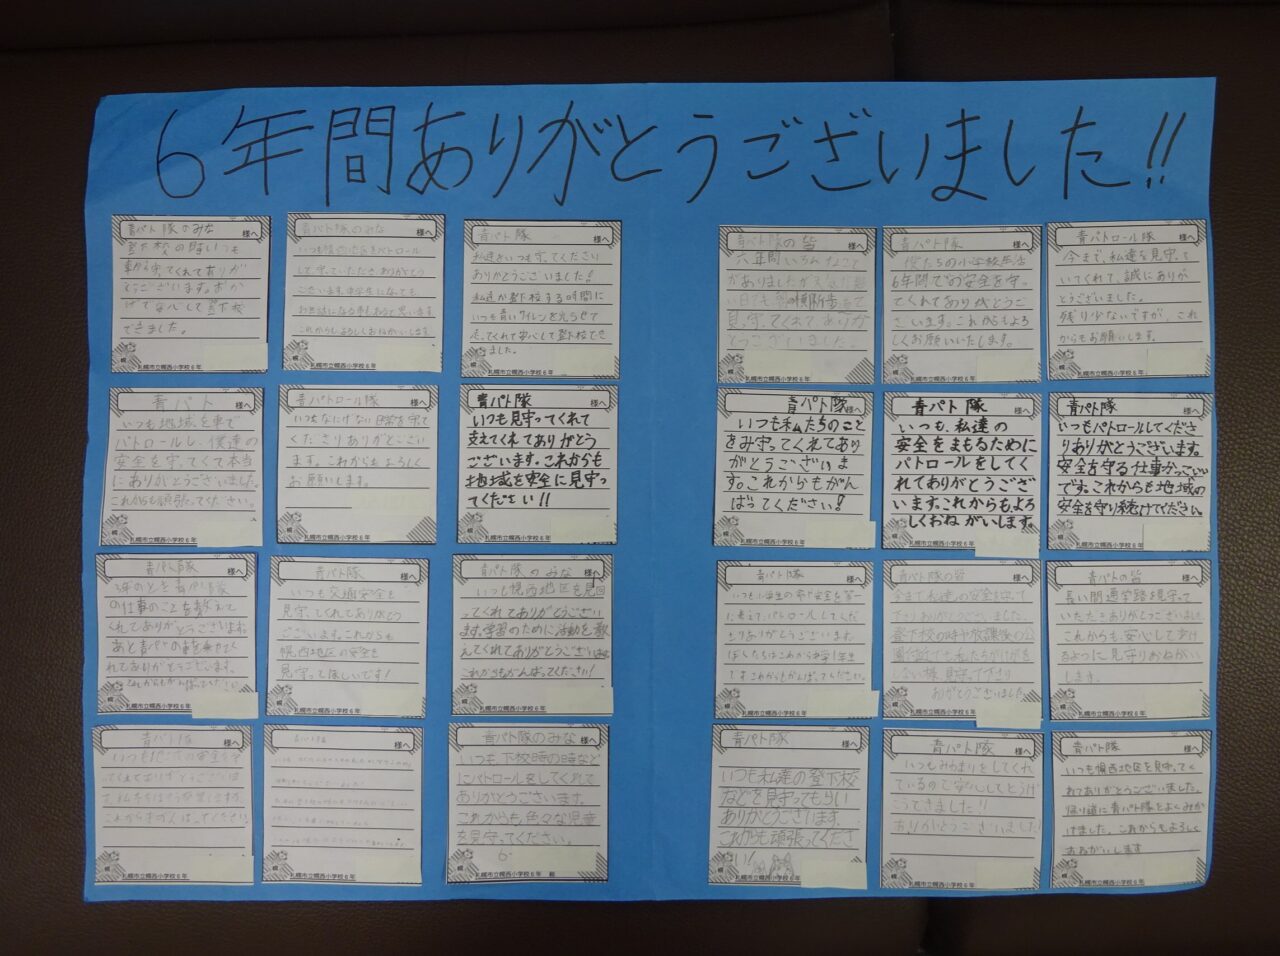 6年間ありがとうございました!!
青パト隊のみな様へ
登下校の時いつも
車から守ってくれてありが
とうございます。おか
げで安心して登下校
できました。
札幌市立幌西小学校6年
青パト隊のみな様へ
いつも幌西地区をパトロール
して守っていただきありがとう
ございます。中学生になっても
お世話になる事もあると思います。
これからもよろしくおねがいします。
札幌市立幌西小学校6年
青パト隊 様へ
私達をいつも守ってくださり
ありがとうございました!
私達が登下校する時間に
いつも青いサイレンを光らせて
走ってくれて安心して登下校でき
ました。
札幌市立幌西小学校6年
青パト隊の皆様へ
六年間いろんなことで
がありましたが
見守ってくれてありが
とうございました。
札幌市立幌西小学校6年
青パト隊 様へ
僕たちの小学校生活
6年間での安全を守っ
てくれてありがとうご
ざいます。これからもよろ
しくお願いいたします。
札幌市立幌西小学校6年
青パトロール隊 様へ
今まで、私達を見守って
いてくれて、誠にありが
とうございました。
残り少ないですが、これ
からもお願いします。
札幌市立幌西小学校6年
青パト 様へ
いつも地域を車で
パトロールし、僕達の
安全を守ってくれて本当
にありがとうございました。
これからも頑張ってください。
札幌市立幌西小学校6年
青パトロール隊 様へ
いつもなにげない日常を守って
くださりありがとうござい
ます。これからもよろしく
お願いします。
札幌市立幌西小学校6年
青パト隊 様へ
いつも見守ってくれて
支えてくれてありがとう
ございます。これからも
地域を安全に見守っ
てください!!
札幌市立幌西小学校6年
青パト隊様へ
いつも私たちのこと
をみ守ってくれてあり
がとうございま
す。これからもがん
ばってください!
札幌市立幌西小学校6年
青パト隊 様へ
いつも、私達の
安全をまもるために
パトロールをしてく
れてありがとうござ
います。これからも、よろ
しくおねがいします。
札幌市立幌西小学校6年
青パト隊 様へ
いつもパトロールしてくださ
りありがとうございます。
安全を守る仕事かっこいい
です。これからも地域の
安全を守り続けてください。
札幌市立幌西小学校6年
青パト隊 様へ
3年のとき青パト隊
の仕事のことを教えて
くれてありがとうございます。
あと青パトの車に乗せてく
れてありがとうございます。
これからもがんばってください。
札幌市立幌西小学校6年
青パト隊 様へ
いつも交通安全を
見守ってくれてありがとう
ございます。これからも
幌西地区の安全を
見守ってほしいです!
札幌市立幌西小学校6年
青パト隊のみな様へ
いつも幌西地区を見回
ってくれてありがとうござい
ます。学習のために活動を教
えてくれてありがとうございました。
これからもがんばってください!
札幌市立幌西小学校6年
青パト隊 様へ
いつも小学生の命や安全を第一
に考えてパトロールしてくださ
りありがとうございます。
ぼくたちはこれから中学1年生
です。これからもがんばってください。
札幌市立幌西小学校6年
青パト隊の皆様へ
今まで私達の安全を守って
下さりありがとうございました。
登下校の時や放課後の公
園などでも私たちがけがを
しない様、見守って下さり
ありがとうございました。
札幌市立幌西小学校6年
青パトの皆様へ
長い間通学路を見守って
いただきありがとうございました。
これからも、安心して歩け
るように見守りおねがい
します。
札幌市立幌西小学校6年
青パト隊 様へ
札幌市立幌西小学校6年
青パト隊 様へ
札幌市立幌西小学校6年
青パト隊のみな様へ
いつも、下校時の時など
にパトロールをしてくれて
ありがとうございます。
これからも、色々な児童
を見守ってください。
札幌市立幌西小学校6年
青パト隊 様へ
いつも私達の登下校
などを見守ってもらい
ありがとうございます。
これから先頑張ってくださ
い!
札幌市立幌西小学校6年
青パト隊 様へ
いつもみまわりをしてくれ
ているので安心してとうげ
こうできました!!
ありがとうございました!
札幌市立幌西小学校6年
青パト隊 様へ
いつも幌西地区を見守ってく
れてありがとうございました。
帰り道に青パト隊をよくみか
けました。これからもよろしく
おねがいします
札幌市立幌西小学校6年